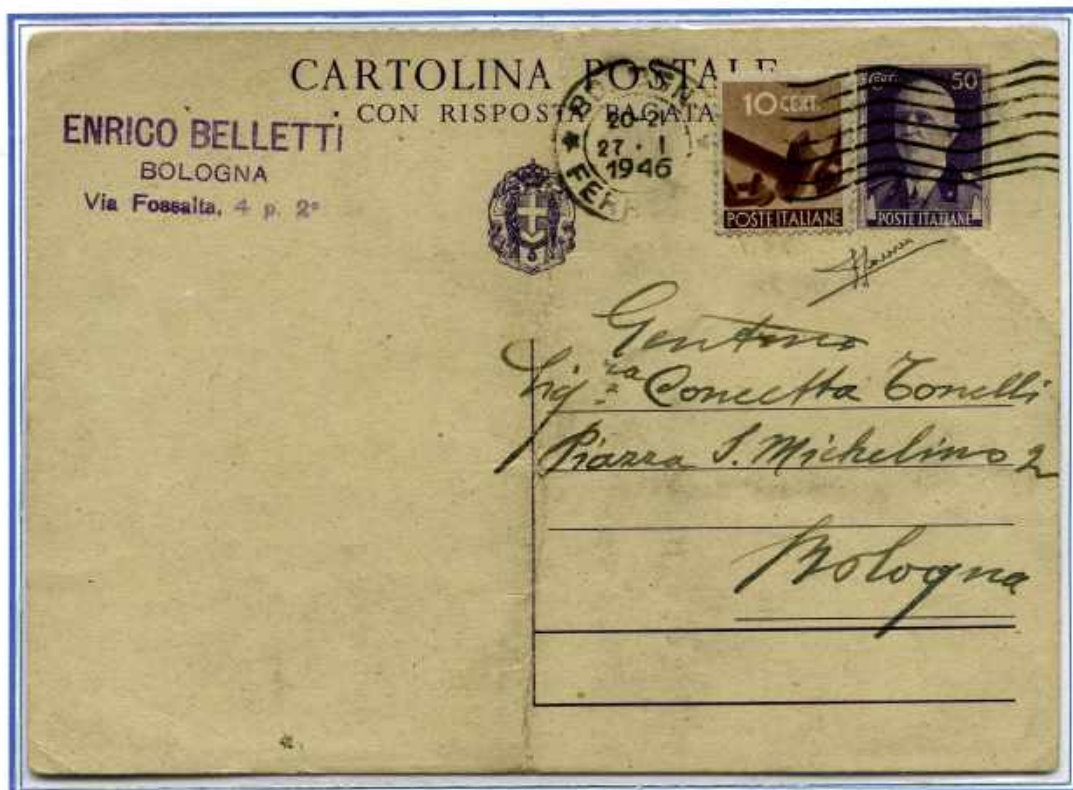 CARTOLINA POSTALE
CON RISPOSTA PAGATA
ENRICO BELLETTI
BOLOGNA
Via Fossalta, 4 p. 2°
20-21
27 · 1
1946
FERR
10 CERT.
POSTE ITALIANE
Cent. 50
POSTE ITALIANE
Sig.ra Concetta Tonelli
Piazza S. Michelino 2
Bologna